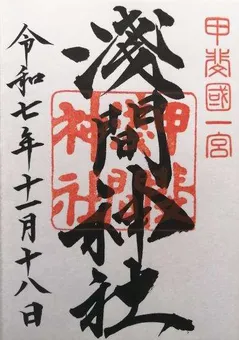 甲斐國一宮
淺間神社
甲斐
神社
令和七年十一月十八日